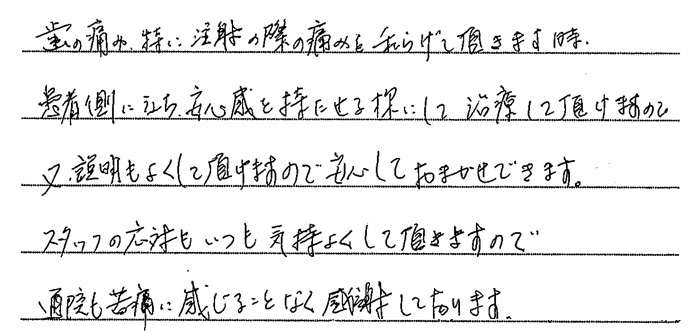 歯の痛みや、特に注射の際の痛みを和らげて頂きます時、
患者側に立ち、安心感を持たせる様にして治療して頂けますので
又、説明もよくして頂けますので安心しておまかせできます。
スタッフの応対もいつも気持よくして頂きますので
通院も苦痛に感じることなく感謝しております。